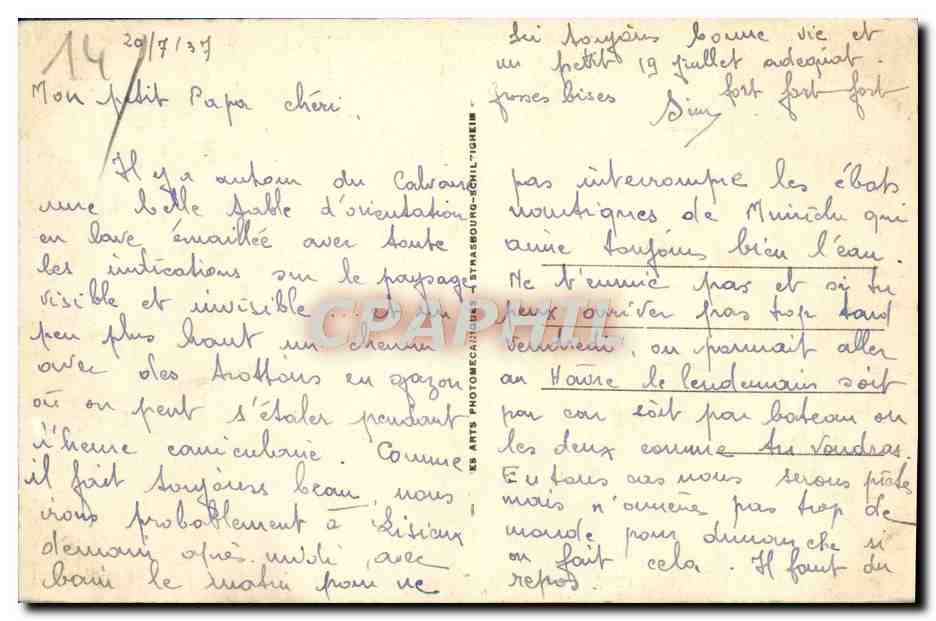 14
20/7/37
Mon petit Papa chéri
Il y a autour du Calvaire
une belle table d'orientation
en lave émaillée avec toute
les indications sur le paysage
visible et invisible ... et un
peu plus haut un chemin
avec des trottoirs en gazon
où on peut s'étaler pendant
l'heure caniculaire. Comme
il fait toujours beau, nous
irons probablement à Lisieux
demain après-midi, avec
bain le matin pour ne
pas interrompre les ébats
nautiques de qui
aime toujours bien l'eau.
Ne t'ennuie pas et si tu
peux arriver pas trop tard
vendredi, on pourrait aller
au Hâvre le lendemain soit
par car soit par bateau ou
les deux comme tu voudras.
En tous cas nous serons prêtes
mais n'amène pas trop de
monde pour dimanche si
on fait cela. Il faut du
repos.
Ici toujours bonne vie et
un petit 19 juillet adéquat.
grosses bises fort fort fort
LES ARTS PHOTOMECANIQUES - STRASBOURG-SCHILTIGHEIM
CPAPHIL